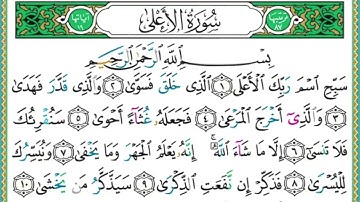 آياتها ١٩ سُورَةُ الْأَعْلَىٰ ترتيبها ٨٧
بِسْمِ اللَّهِ الرَّحْمَٰنِ الرَّحِيمِ
سَبِّحِ اسْمَ رَبِّكَ الْأَعْلَى ١ الَّذِي خَلَقَ فَسَوَّىٰ ٢ وَالَّذِي قَدَّرَ فَهَدَىٰ
٣ وَالَّذِي أَخْرَجَ الْمَرْعَىٰ ٤ فَجَعَلَهُ غُثَاءً أَحْوَىٰ ٥ سَنُقْرِئُكَ
فَلَا تَنسَىٰ ٦ إِلَّا مَا شَاءَ اللَّهُ ۚ إِنَّهُ يَعْلَمُ الْجَهْرَ وَمَا يَخْفَىٰ ٧ وَنُيَسِّرُكَ
لِلْيُسْرَىٰ ٨ فَذَكِّرْ إِن نَّفَعَتِ الذِّكْرَىٰ ٩ سَيَذَّكَّرُ مَن يَخْشَىٰ ١٠